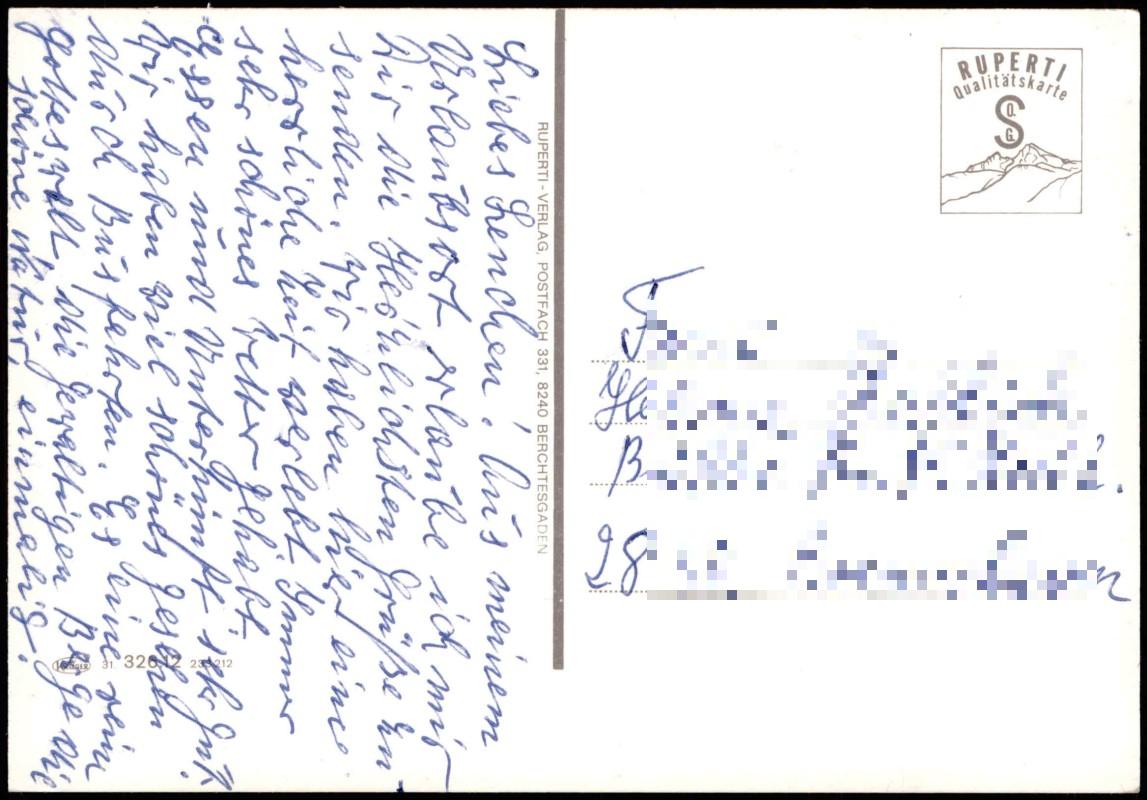 Liebes Lenchen! Aus meinem
Urlaubsort erlaube ich mir
Dir die Herzlichsten Grüße zu
senden. Wir haben hier eine
herrliche Zeit verlebt Immer
sehr schönes Wetter gehabt
Essen und Unterkunft sehr gut.
Wir haben viel schönes gesehen
durch Busfahrten. Es eine
Gotteswelt die gewaltigen Berge die
schöne Natur einmalig.
RUPERTI-VERLAG, POSTFACH 331, 8240 BERCHTESGADEN
31. 326.12
RUPERTI
Qualitätskarte
S
O.
G.
F
He
B
28